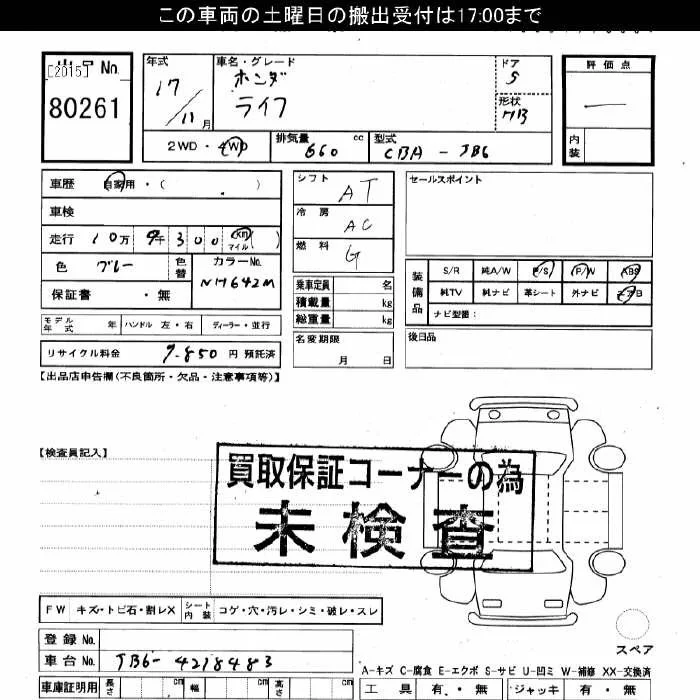 この車両の土曜日の搬出受付は17:00まで
[2015]
出品 No.
80261
年式
17/11月
車名・グレード
ホンダ
ライフ
ドア
5
形状
HB
評価点
―
内装
2WD・4WD
排気量
660 cc
型式
CBA-JB6
車歴 自家用・( )
車検
走行 10万 9千 300 km マイル( )
色 ブルー 色替
カラーNo.
NH642M
保証書 ・無
モデル年式 年 ハンドル 左・右 ディーラー・並行
リサイクル料金 7,850 円 預託済
シフト AT
冷房 AC
燃料 G
乗車定員 名
積載量 kg
総重量 kg
名変期限
月 日
セールスポイント
装備品
S/R 純A/W P/S P/W ABS
純TV 純ナビ 革シート 外ナビ エアB
ナビ型番:
後日品
【出品店申告欄(不良箇所・欠品・注意事項等)】
【検査員記入】
買取保証コーナーの為
未検査
FW キズ・トビ石・割レX シート内装 コゲ・穴・汚レ・シミ・破レ・スレ
登録 No.
車台 No. JB6-4218483
車庫証明用 長さ cm 幅 cm 高さ cm
スペア
A-キズ C-腐食 E-エクボ S-サビ U-凹ミ W-補修 XX-交換済
工具 有・無 ジャッキ 有・無